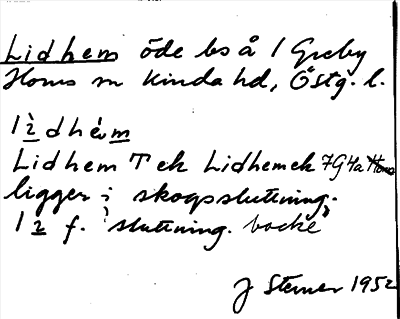 Lidhem öde bs å 1 Greby
Horns sn Kinda hd, Östg. l.
lìdhèm
Lidhem T ek Lidhemek 7G4a Horns
ligger i skogssluttning.
lì f. 'sluttning. backe'
J Sterner 1952